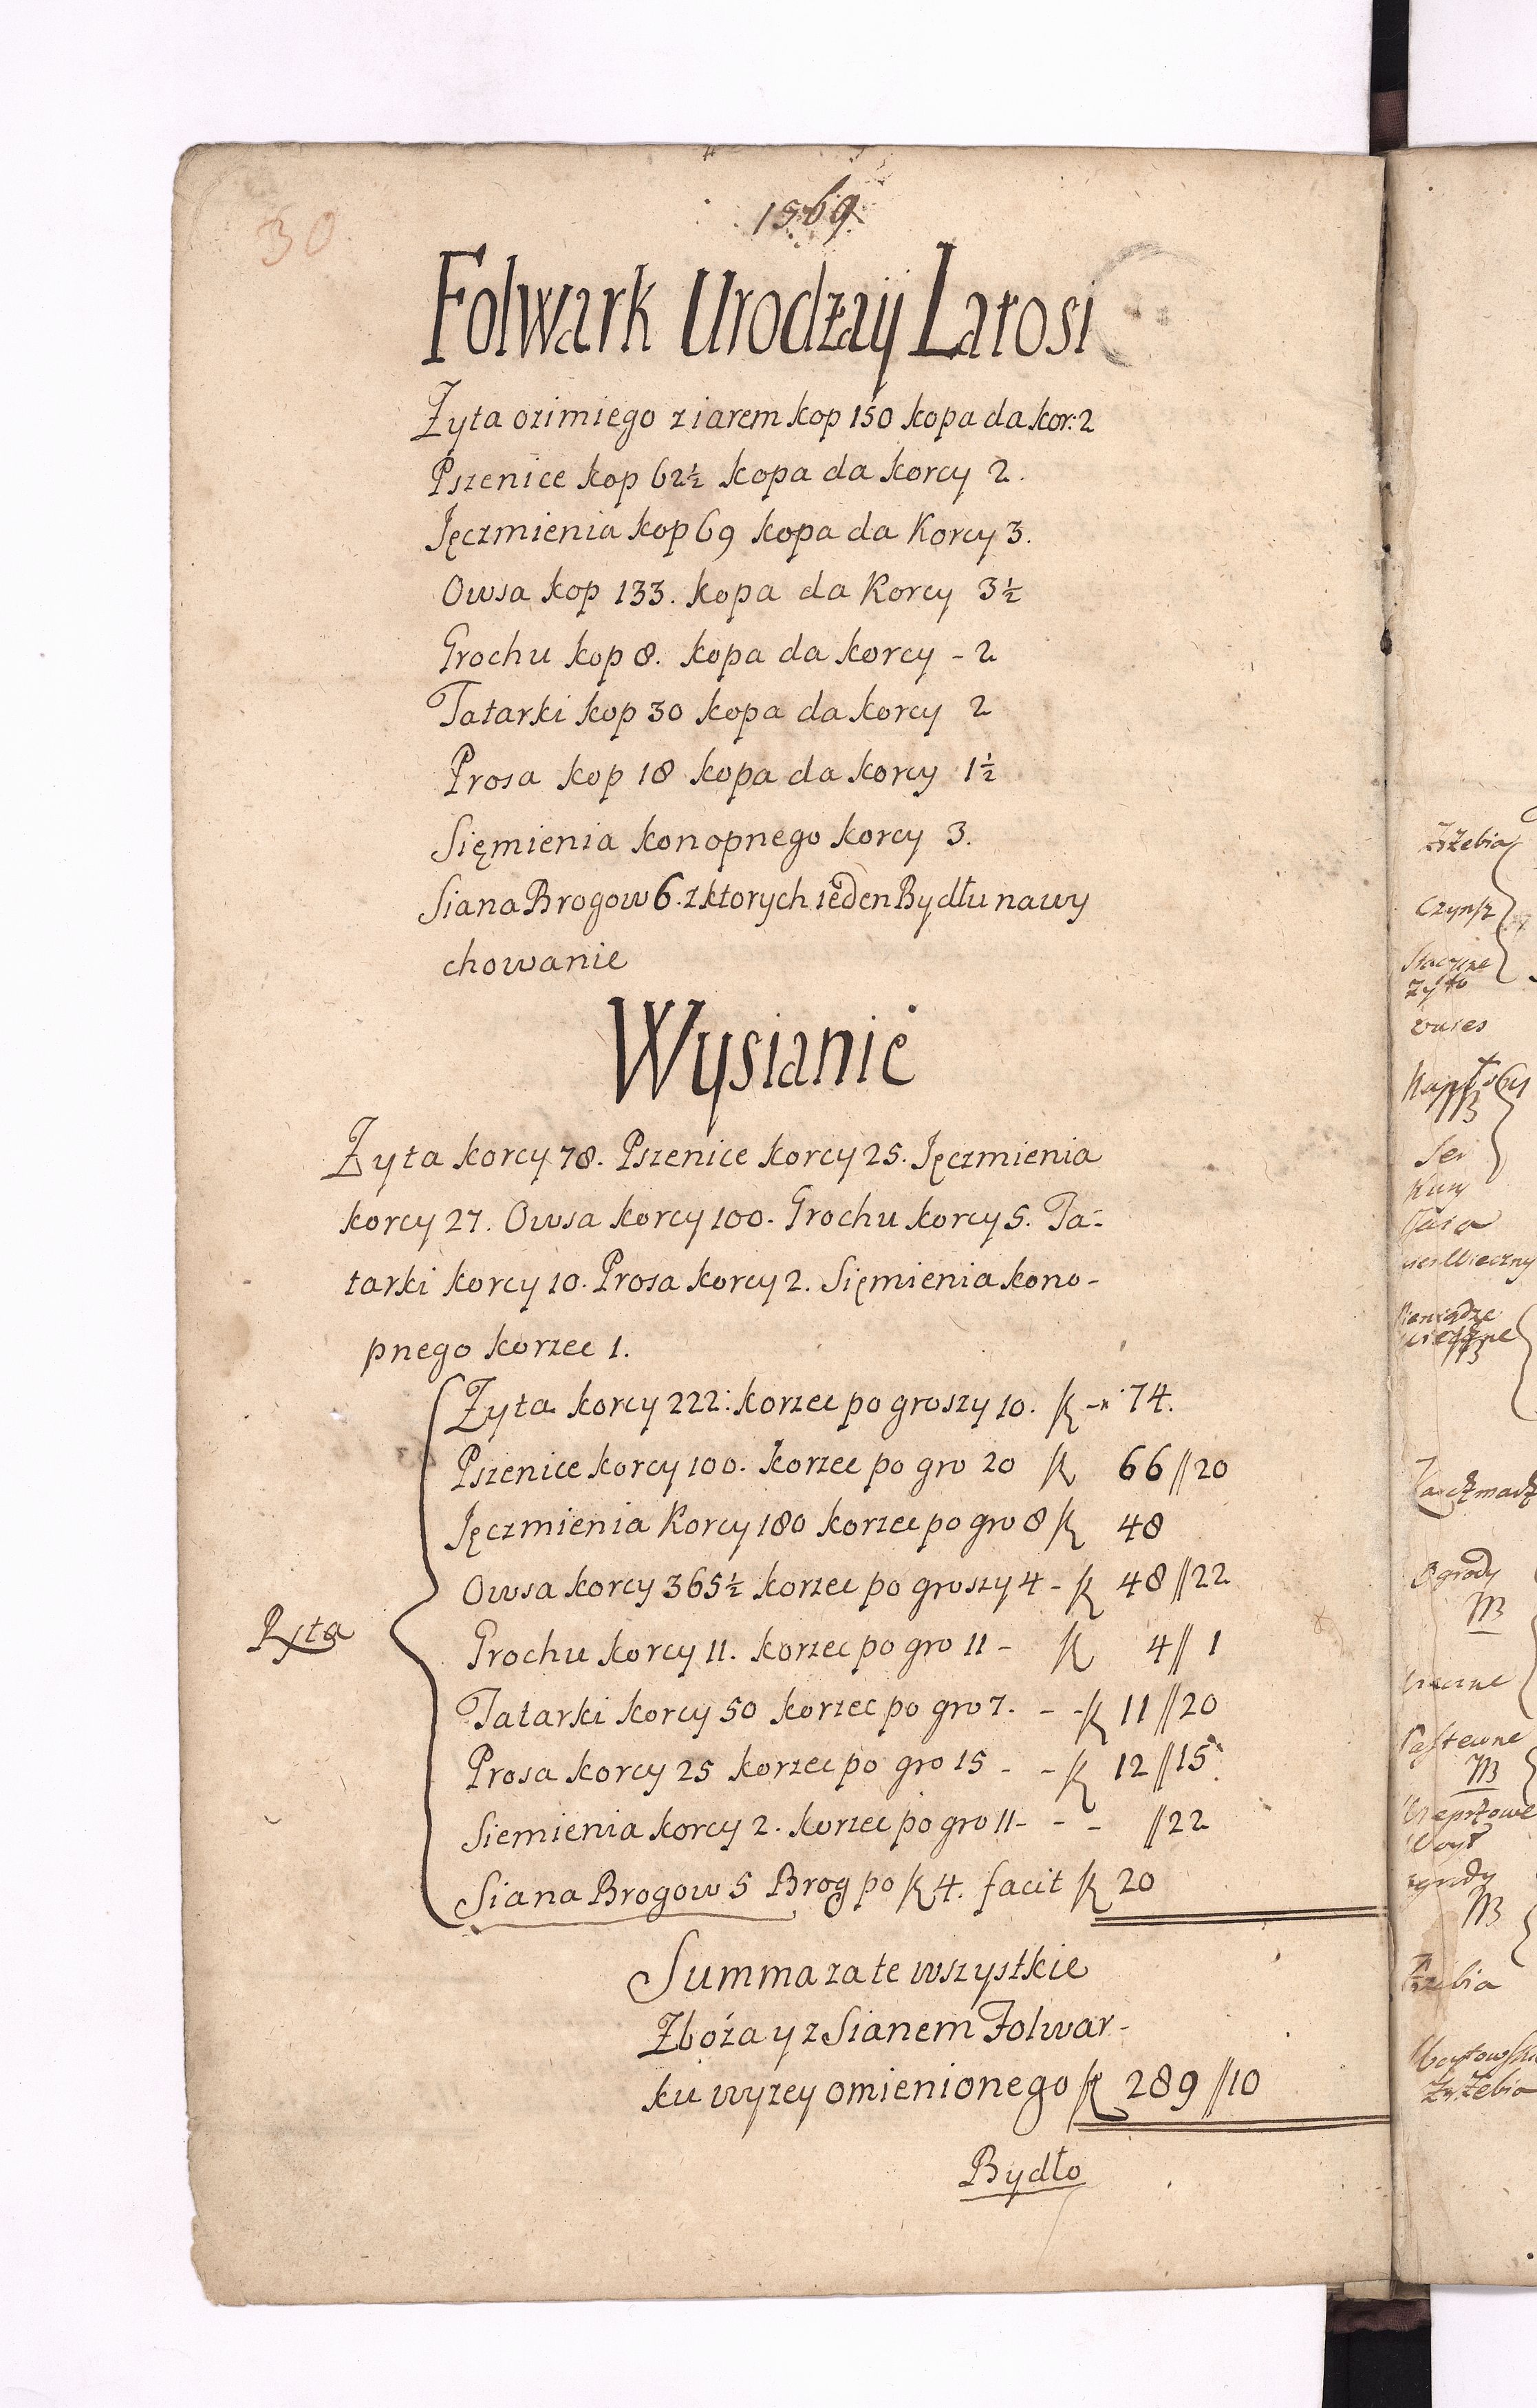 30
1569
Folwark Urodzaij Latosi
Żyta ozimiego z iarem kop 150 kopa da kor: 2
Pszenice kop 62½ kopa da korcy 2.
Jęczmienia kop 69 kopa da Korcy 3.
Owsa kop 133. kopa da Korcy 3½
Grochu kop 8. kopa da korcy - 2
Tatarki kop 30 kopa da korcy 2
Prosa kop 18 kopa da korcy 1½
Sięmienia konopnego korcy 3.
Siana Brogow 6. z ktorych ieden Bydłu na wy
chowanie
Wysianie
Żyta korcy 78. Pszenice korcy 25. Jęczmienia
korcy 27. Owsa korcy 100. Grochu korcy 5. Ta-
tarki korcy 10. Prosa korcy 2. Sięmienia kono-
pnego korzec 1.
Żyta korcy 222: korzec po groszy 10. fl - 74.
Pszenice korcy 100. korzec po gro 20 fl 66 // 20
Jęczmienia Korcy 180 korzec po gro 8 fl 48
Owsa korcy 365½ korzec po groszy 4 - fl 48 // 22
Rxta
Grochu korcy 11. korzec po gro 11 - fl 4 // 1
Tatarki korcy 50 korzec po gro 7. - - fl 11 // 20
Prosa korcy 25 korzec po gro 15 - - fl 12 // 15
Siemienia korcy 2. korzec po gro 11 - - - // 22
Siana Brogow 5 Brog po fl 4. facit fl 20
Summa za te wszystkie
Zboża y z Sianem Folwar-
ku wyzey omienionego fl 289 // 10
Bydło
Źrzebia
Czynsz
Stacyine
Zyto
owies
Ser
Kury
Jaia
Pieniądze
Ogrody
Źrzebia